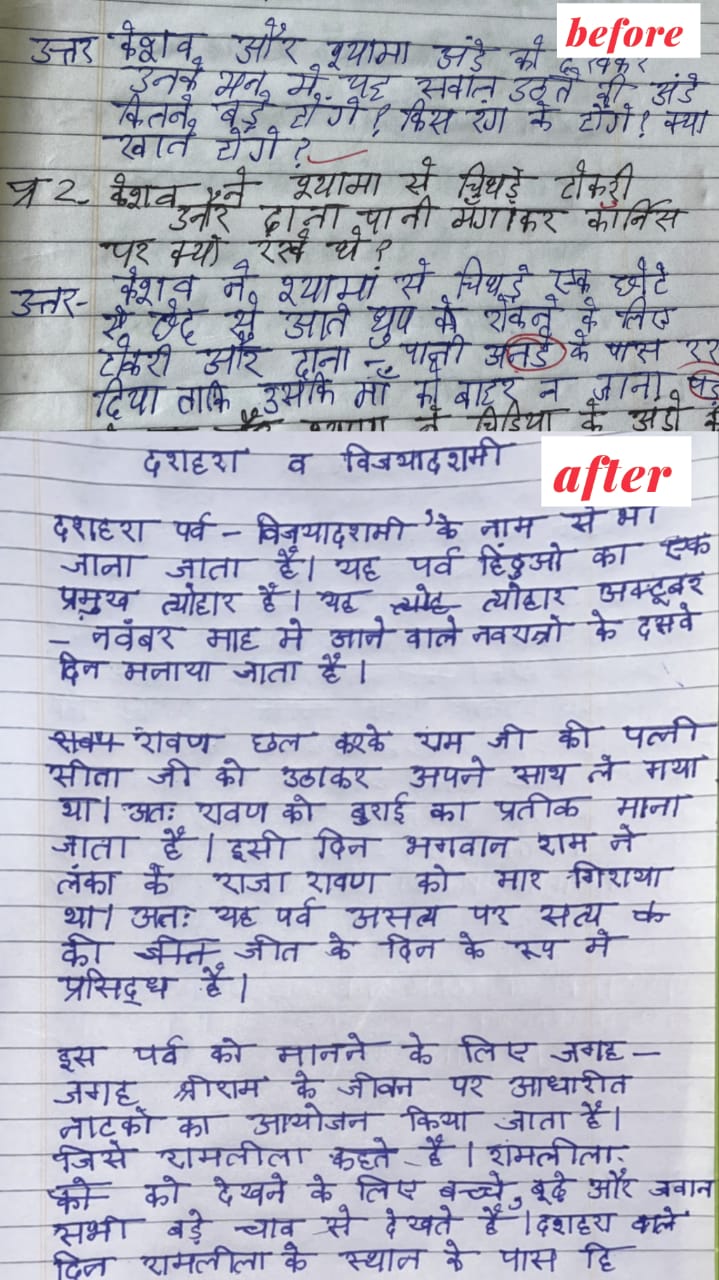 before
उत्तर केशव और श्यामा अंडे को देखकर
उनके मन में यह सवाल उठते की अंडे
कितने बड़े होंगे? किस रंग के होंगे? क्या
खाते होंगे?
प्र 2- केशव ने श्यामा से चिथड़े टोकरी
और दाना पानी मँगाकर कार्निस
पर क्यों रखे थे?
उत्तर- केशव ने श्यामा से चिथड़े एक छोटे
से छेद से आते धुप को रोकने के लिए
टोकरी और दाना – पानी के पास रर
दिया ताकि उसकि माँ को बाहर न जाना पड़
after
दशहरा व विजयादशमी
दशहरा पर्व – विजयादशमी 'के नाम से भी
जाना जाता है। यह पर्व हिंदुओ का एक
प्रमुख त्योहार है। यह त्योहार अक्टूबर
– नवंबर माह मे आने वाले नवरात्रो के दसवे
दिन मनाया जाता है।
रावण छल करके राम जी की पत्नी
सीता जी को उठाकर अपने साथ ले गया
था। अतः रावण को बुराई का प्रतीक माना
जाता है। इसी दिन भगवान राम ने
लंका के राजा रावण को मार गिराया
था। अतः यह पर्व असत्य पर सत्य
की जीत के दिन के रूप मे
प्रसिद्ध है।
इस पर्व को मानने के लिए जगह –
जगह श्रीराम के जीवन पर आधारीत
नाटको का आयोजन किया जाता है।
जिसे रामलीला कहते है। रामलीला
को देखने के लिए बच्चे, बूढे और जवान
सभी बड़े चाव से देखते है। दशहरा वाले
दिन रामलीला के स्थान के पास हि